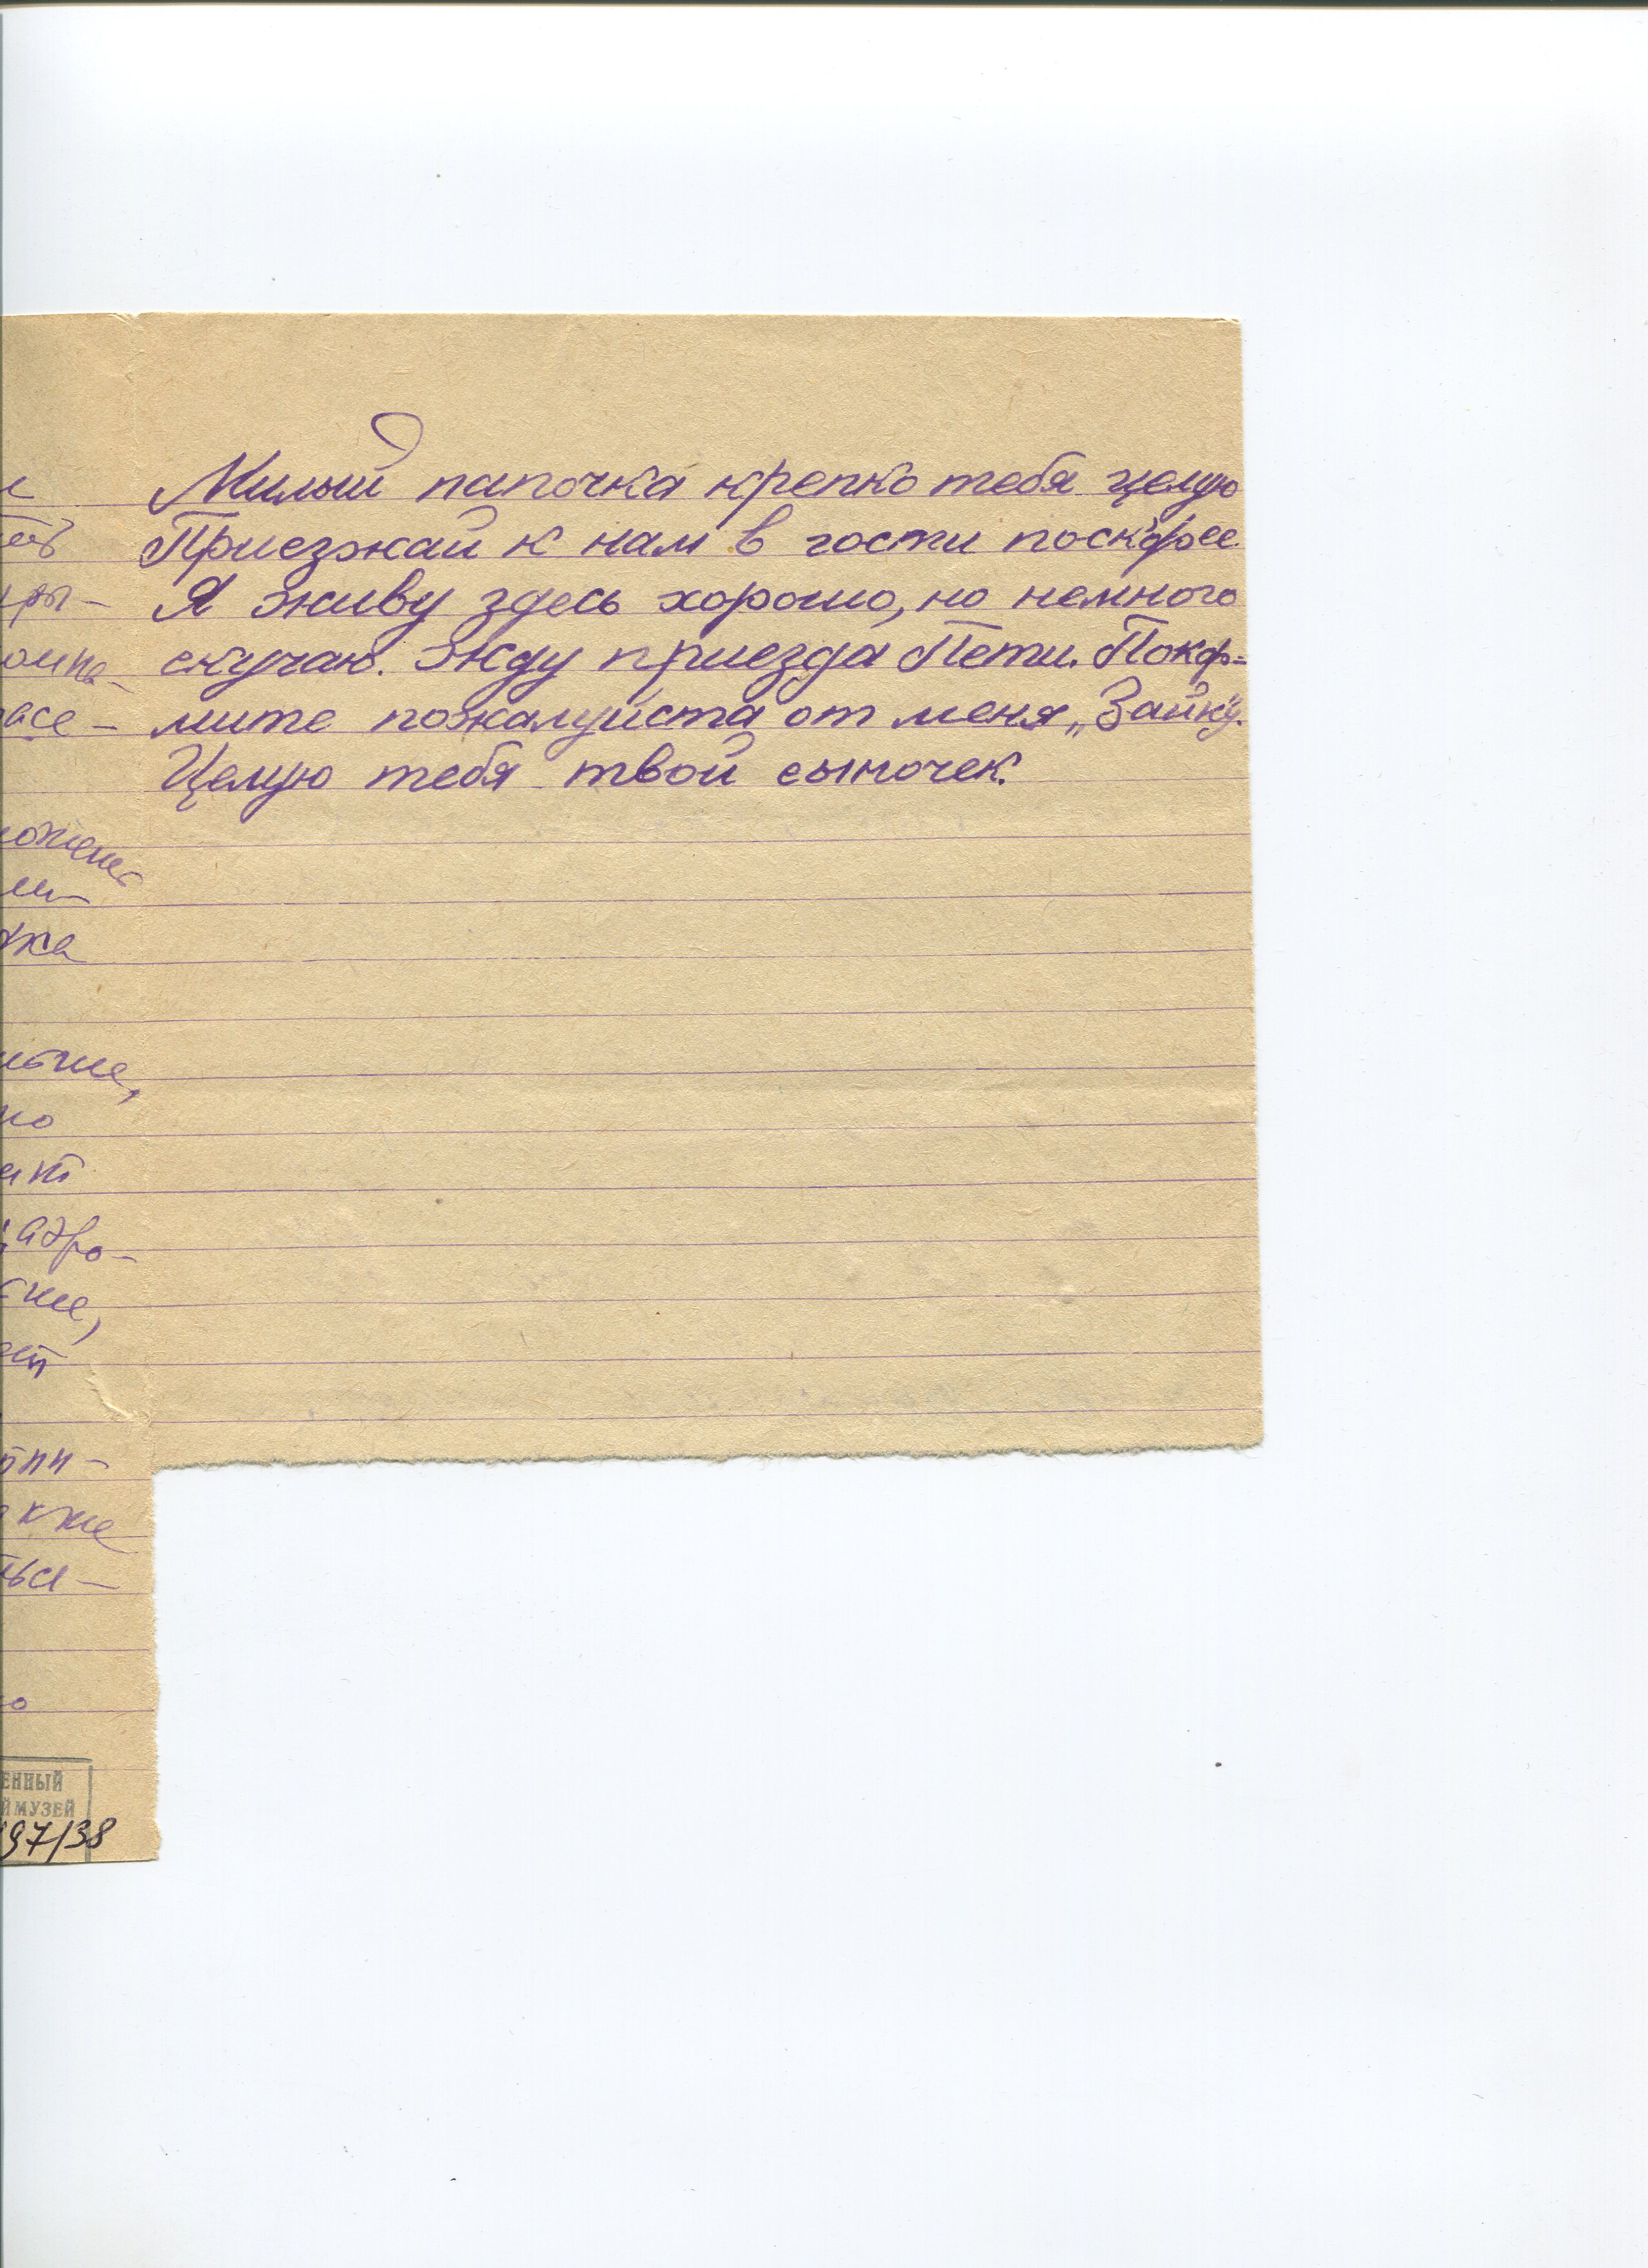 Милый папочка крепко тебя целую
Приезжай к нам в гости поскорее.
Я живу здесь хорошо, но немного
скучаю. Жду приезда Пети. Покор-
мите пожалуйста от меня „Зайку".
Целую тебя твой сыночек.
ры-
асе-
жка
но
адро-
кже
ЕННЫЙ
Й МУЗЕЙ
97/38